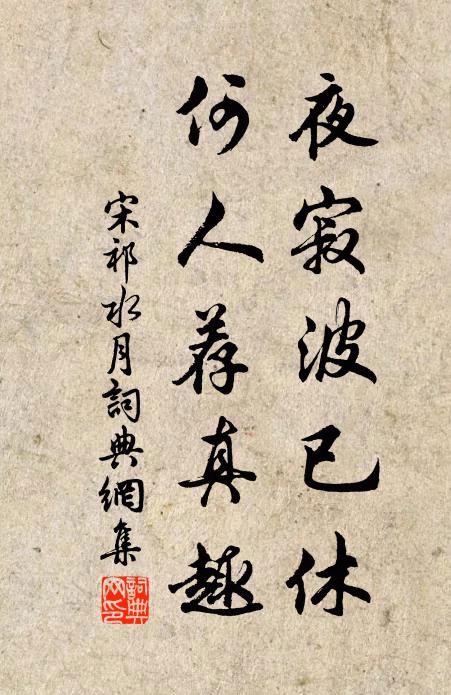 夜寂波已休
何人荐真趣
宋祁水月詞典網集
詞典網印